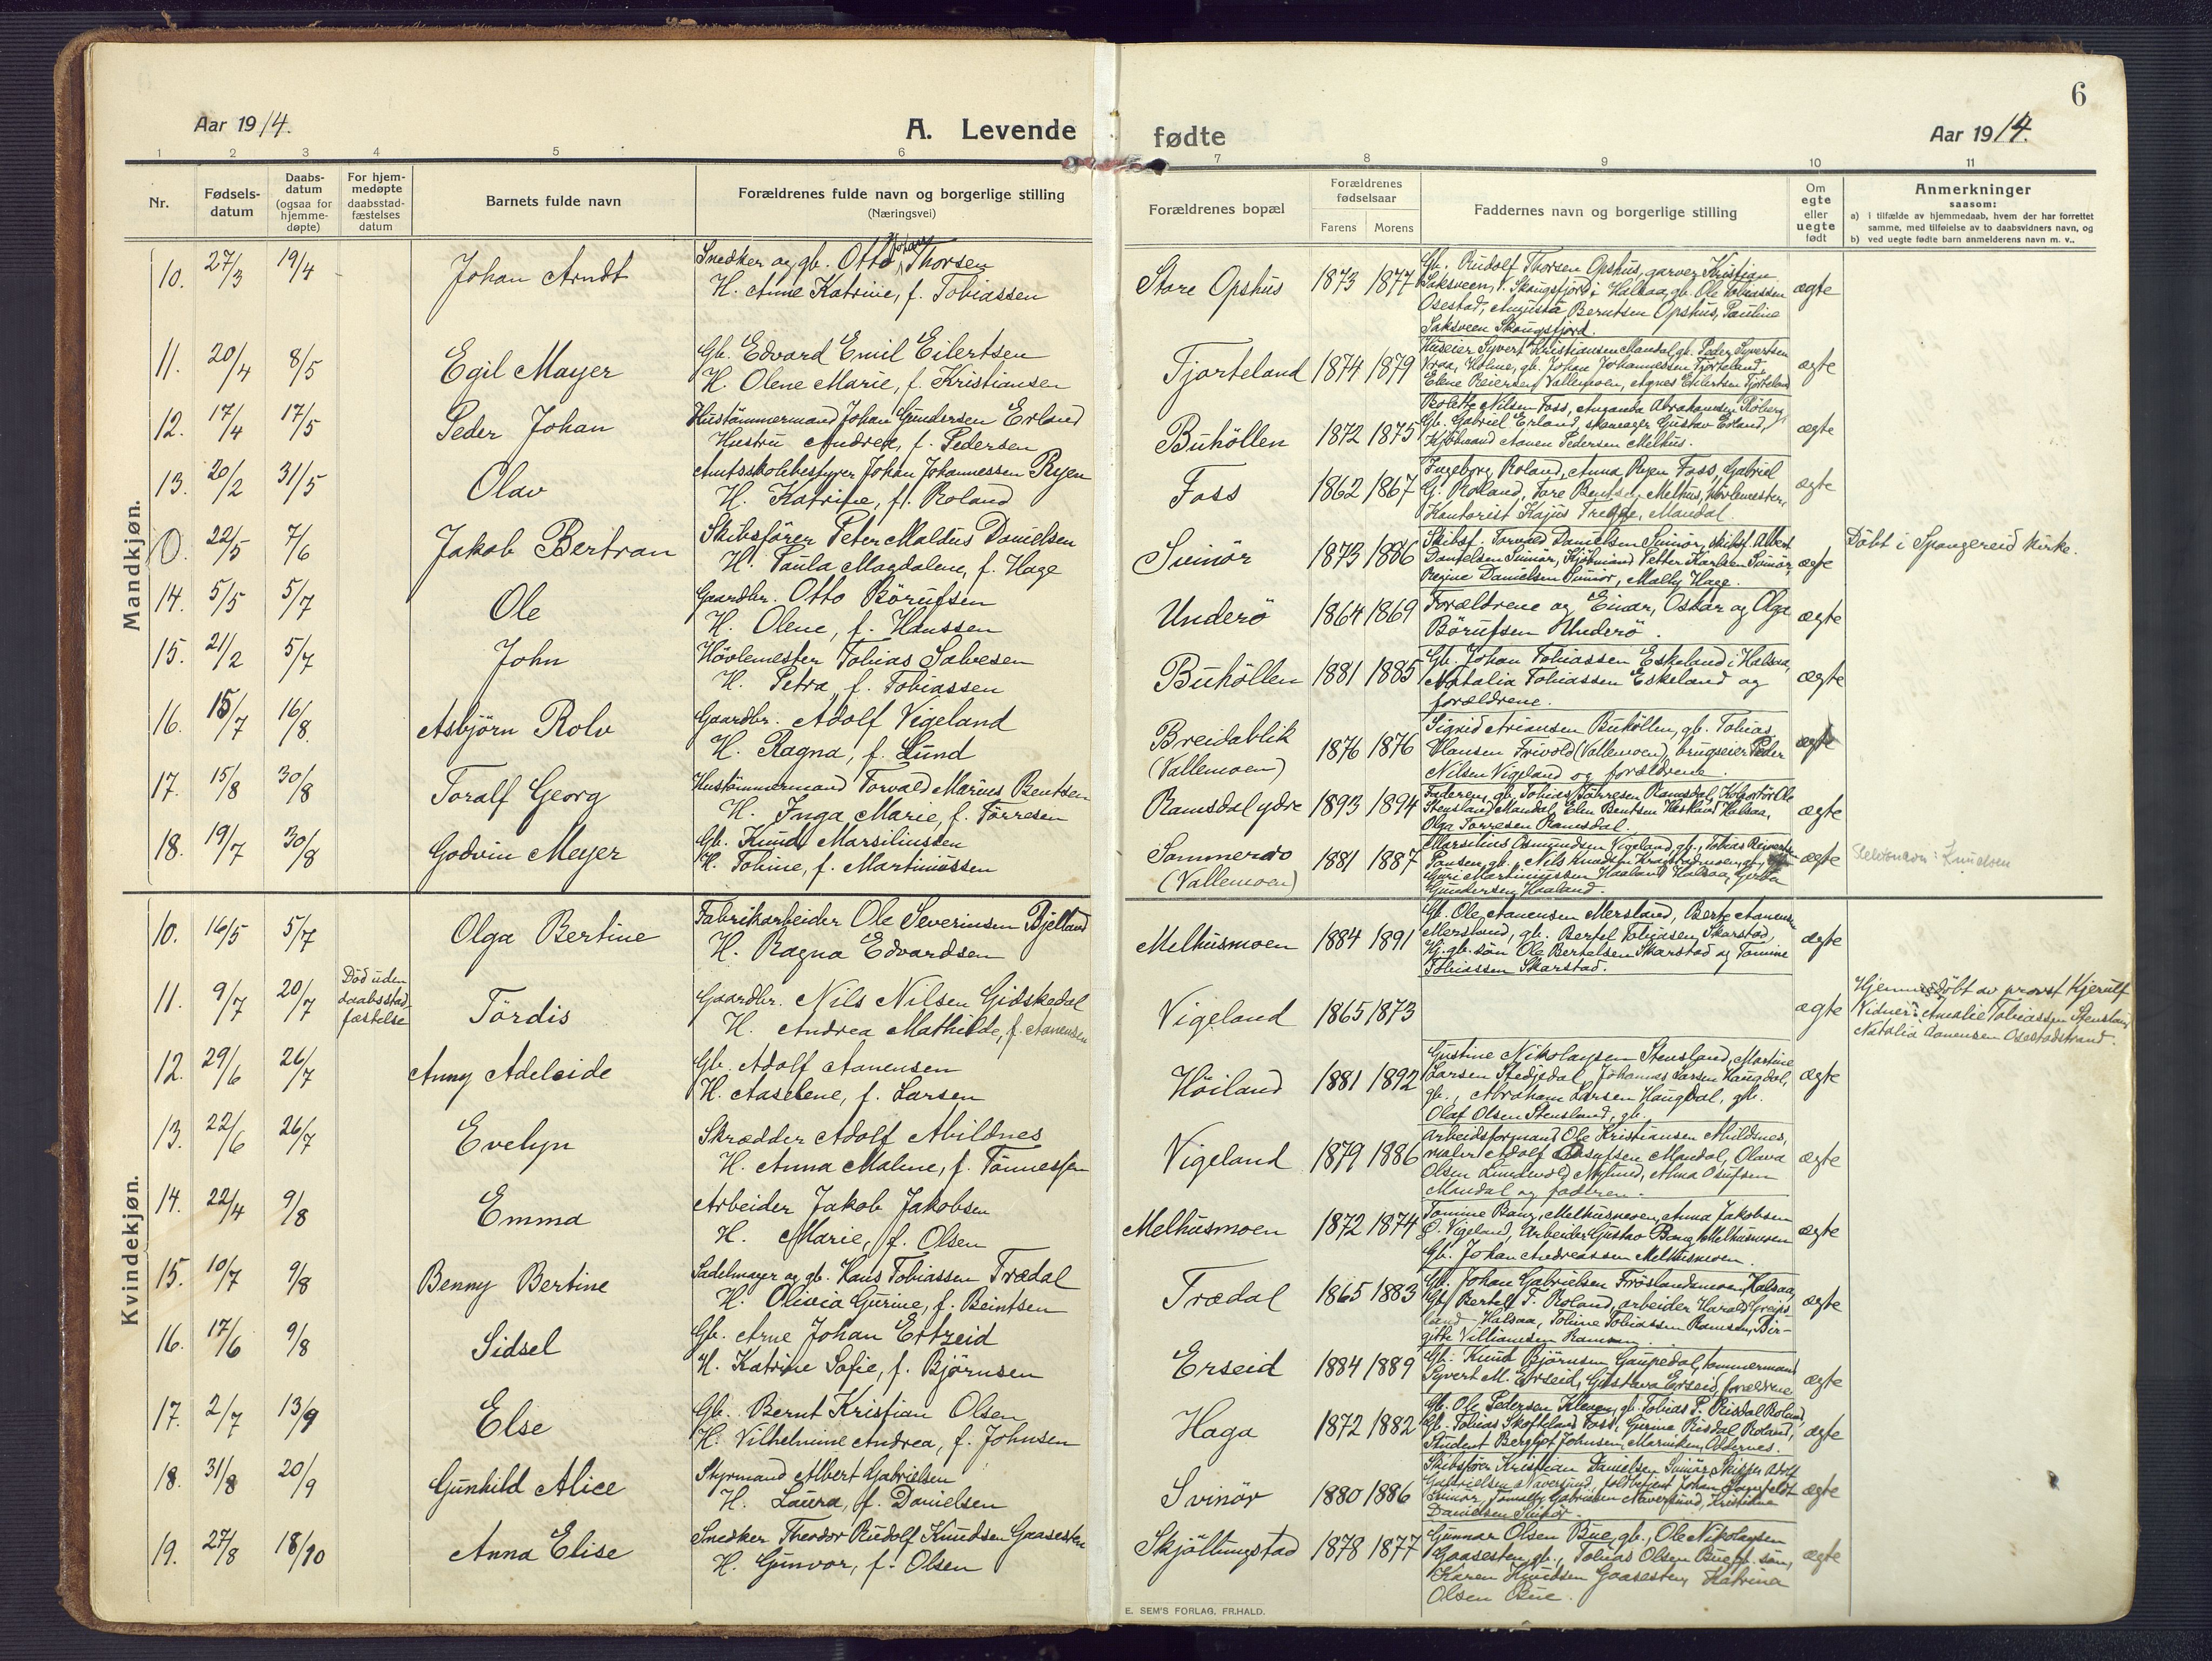 Aar 1914.
A. Levende
fødte
Aar 1914.
6
1 2 3 4 5 6 7 8 9 10 11
Nr.
Fødsels-
datum
Daabs-
datum
(ogsaa for
hjemme-
døpte)
For hjem-
medøpte
daabsstad-
fæstelses
datum
Barnets fulde navn
Forældrenes fulde navn og borgerlige stilling
(Næringsvei)
Forældrenes bopæl
Forældrenes
fødselsaar
Farens Morens
Faddernes navn og borgerlige stilling
Om
egte
eller
uegte
født
Anmerkninger
saasom:
a) i tilfælde av hjemmedaab, hvem der har forrettet
samme, med tilføielse av to daabsvidners navn, og
b) ved uegte fødte barn anmelderens navn m. v..
Mandkjøn.
10. 27/3 19/4 Johan Arndt
Snedker og gb. Otto Johan Thorsen
H. Anne Katrine, f. Tobiassen
Store Opshus 1873 1877
Gb. Rudolf Thorsen Opshus, garver Kristian
Saksveen, Skougsfjord i Halsaa, gb. Ole Tobiassen
Osestad, Augusta Berntsen Opshus, Pauline
Saksveen Skougsfjord.
ægte
11. 20/4 8/5 Egil Mayer
Gb. Edvard Emil Eilertsen
H. Olene Marie, f. Kristiansen
Fjorteland 1874 1879
Huseier Syvert Kristiansen Mandal, gb. Peder Syvertsen
Vraa, Holme, gb. Johan Johannessen Fjorteland,
Elene Reiersen Vallemoen, Agnes Eilertsen Fjorteland
ægte
12. 17/4 17/5 Peder Johan
Hustømmermand Johan Gundersen Erland
Hustru Andrea, f. Pedersen
Buhöllen 1872 1875
Bolette Nilsen Foss, Amanda Abrahamsen
Gb. Gabriel Erland, skomager Gustav Erland,
Kjöbmand Aanen Pedersen Melhus.
ægte
13. 20/2 31/5 Olav
Amtsskolebestyrer Johan Johannessen Ryen
H. Katrine, f. Roland
Foss 1862 1867
Ingeborg Roland, Anna Ryen Foss, Gabriel
G. Roland, Tore Bentsen Melhus, hövlemester,
Kantorist Kajus Tregde, Mandal.
ægte
0. 22/5 7/6 Jakob Bertran
Skibsfører Peter Maldus Danielsen
H. Paula Magdalene, f. Hage
Svinör 1873 1886
Skibsf. Torvald Danielsen Svinör, skibsf. Albert
Danielsen Svinör, Kjöbmand Petter Karlsen Svinör,
Regine Danielsen Svinör, Mally Hage.
ægte
Döbt i Spangereid Kirke.
14. 5/5 5/7 Ole
Gaardbr. Otto Börufsen
H. Olene, f. Hanssen
Underö 1864 1869
Forældrene og Einar, Oskar og Olga
Börufsen Underö.
ægte
15. 21/2 5/7 John
Hövlemester Tobias Salvesen
H. Petra, f. Tobiassen
Buhöllen 1881 1885
Gb. Johan Tobiassen Eskeland i Halsaa,
Natalia Tobiassen Eskeland og
forældrene.
ægte
16. 15/7 16/8. Asbjörn Rolv
Gaardbr. Adolf Vigeland
H. Ragna, f. Lund
Breidablik
(Vallemoen) 1876 1876
Sigrid Ariansen Buhöllen, gb. Tobias
Hansen Frivold (Vallemoen), brugseier Peder
Nilsen Vigeland og forældrene.
ægte
17. 15/8 30/8 Toralf Georg
Hustømmermand Torvald Marius Bentsen
H. Inga Marie, f. Törresen
Ramsdal ydre 1893 1894
Faderen, gb. Tobias Törresen Ramsdal, Kolportör Ole
Stensland Mandal, Elen Bentsen Halsaa,
Olga Törresen Ramsdal.
ægte
18. 19/7 30/8 Godvin Meyer
Gb. Knud Marsiliussen
H. Tobine, f. Martiniussen
Sommerro
(Vallemoen) 1881 1887
Marselius Osmundsen Vigeland, gb., Tobias
gb., Nils Knudsen
Guri Martiniussen Haaland Halsaa,
Gundersen Haaland.
ægte
Slektsnavn: Knudsen
Kvindekjøn.
10. 16/5 5/7 Olga Bertine
Fabrikarbeider Ole Severinsen Bjelland
H. Ragna Edvardsen
Melhusmoen 1884 1891
Gb. Ole Aanensen Mersland, Berte Aanensen
Mersland, gb. Bertel Tobiasen Skarstad,
gb. sön Ole Bertelsen Skarstad og Tomine
Tobiassen Skarstad.
ægte
11. 9/7 20/7
Död uden
daabsstad
fæstelse
Tördis
Gaardbr. Nils Nilsen Gidskedal
H. Andrea Mathilde, f. Aanensen
Vigeland 1865 1873
ægte
Hjemmedöbt av provst Hjerulf
Vidner: Amalie Tobiassen Stensland,
Natalia Aanensen Osestadstrand.
12. 29/6 26/7 Anny Adeleide
Gb. Adolf Aanensen
H. Aaselene, f. Larsen
Höiland 1881 1892
Gustine Nikolaysen Stensland, Martine
Larsen Stedjedal, Johannes Larsen Haugdal,
gb., Abraham Larsen Haugdal, gb.
Olaf Olsen Stensland, gb.
ægte
13. 22/6 26/7 Evelyn
Skrædder Adolf Abildnes
H. Anna Malene, f. Tönnessen
Vigeland 1879 1886
Arbeidsformand Ole Kristiansen Abildsnes,
maler Adolf Osufsen Mandal, Olava
Olsen Lundevold Nylund, Alma Osufsen
Mandal og faderen.
ægte
14. 22/4 9/8 Emma
Arbeider Jakob Jakobsen
H. Marie, f. Olsen
Melhusmoen 1872 1874
Tomine Bang, Melhusmoen, Anna Jakobsen
Ö. Vigeland, Arbeider Gustav Bang Melhusmoen
Gb. Johan Andreassen Melhusmoen.
ægte
15. 10/7 9/8 Benny Bertine
Sadelmager og gb. Hans Tobiassen Trædal
H. Olivia Gurine, f. Beintsen
Trædal 1865 1883
Gb. Johan Gabrielsen Fröslandsmoen, Halsaa,
Gb. Bertel T. Roland, arbeider Harald Greips
land, Halsaa, Tobine Tobiassen Ramsen, Bir-
gitte Villiamsen
ægte
16. 17/6 9/8 Sidsel
Gb. Arne Johan Ertzeid
H. Katrine Sofie, f. Björnsen
Erseid 1884 1889
Gb. Knud Björnsen Gaupedal, tömmermand
Syvert M. Erseid, Gustava Erseid, forældrene
ægte
17. 2/7 13/9 Else
Gb. Bernt Kristian Olsen
H. Vilhelmine Andrea, f. Johnsen
Haga 1872 1882
Gb. Ole Pedersen Kleven, gb. Tobias P. Risdal Roland,
Gb. Tobias Skofteland Foss, Gurine Risdal Roland,
Student Bergljot Johnsen,
ægte
18. 31/8 20/9 Gunhild Alice
Styrmand Albert Gabrielsen
H. Laura, f. Danielsen
Svinör 1880 1886
Skibsförer Kristian Danielsen Svinör, skipper Adolf
Gabrielsen Naversund, Johan
Svinör, Gabrielsen Naversund, Kristiane
Danielsen Svinör.
ægte
19. 27/8 18/10 Anna Elise
Snedker Theodor Rudolf Knudsen Gaasesten
H. Gunvor, f. Olsen
Skjöllingstad 1878 1877
Gunnar Olsen Bue, gb., Ole Nikolaysen
Gaasesten, gb., Tobias Olsen Bue, gb. sön,
Karen Knudsen Gaasesten, Katrina
Olsen Bue.
ægte
E. SEM'S FORLAG, FR.HALD.